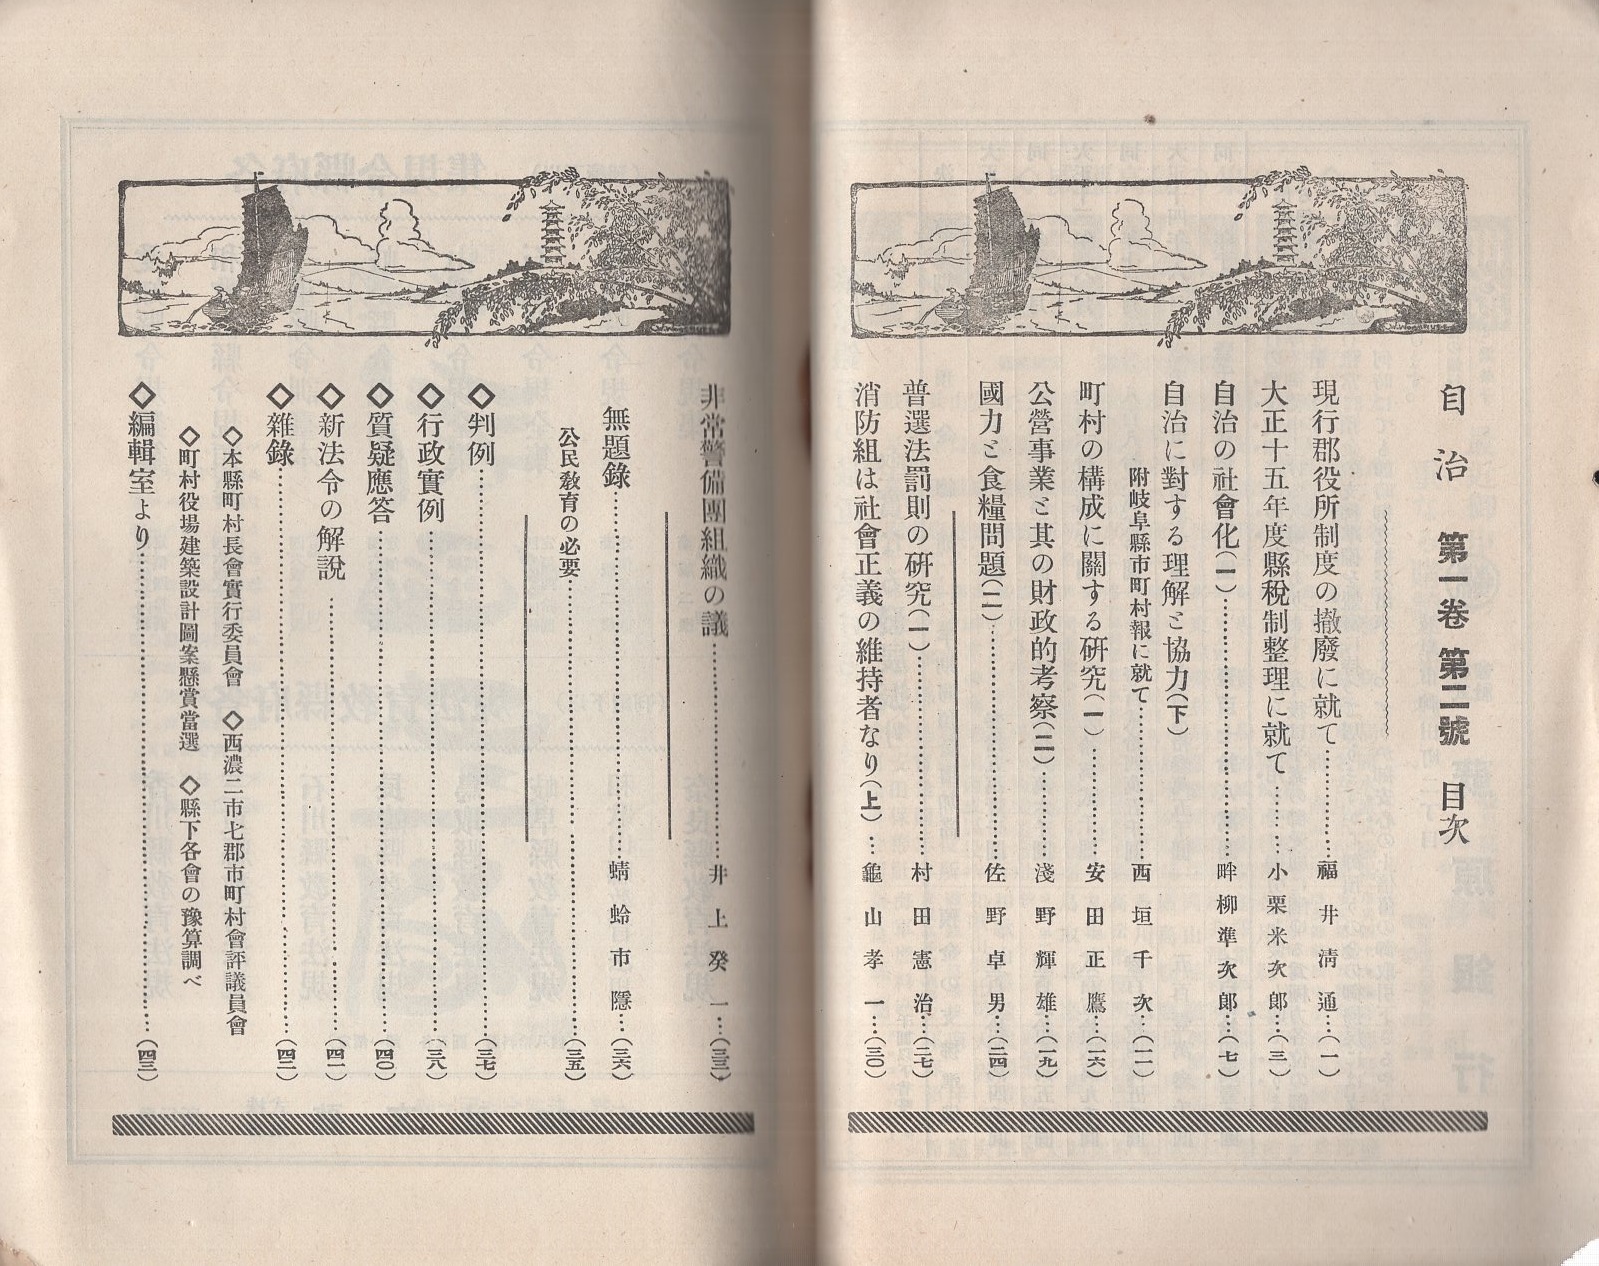 自治 第一卷 第二號 目次
現行郡役所制度の撤廢に就て……福井淸通…(一)
大正十五年度縣稅制整理に就て……小栗米次郎…(三)
自治の社會化(一)……畔柳準次郎…(七)
自治に對する理解と協力(下)
附岐阜縣市町村報に就て……西垣千次…(一一)
町村の構成に關する硏究(一)……安田正鷹…(一六)
公營事業と其の財政的考察(二)……淺野輝雄…(一九)
國力と食糧問題(二)……佐野卓男…(二四)
普選法罰則の硏究(一)……村田憲治…(二七)
消防組は社會正義の維持者なり(上)…龜山孝一…(三〇)
非常警備團組織の議……井上癸一…(三三)
無題錄……蜻蛉市隱…(三六)
公民敎育の必要……(三五)
◇判例……(三七)
◇行政實例……(三八)
◇質疑應答……(四〇)
◇新法令の解說……(四一)
◇雜錄……(四二)
◇本縣町村長會實行委員會 ◇西濃二市七郡市町村會評議員會
◇町村役場建築設計圖案懸賞當選 ◇縣下各會の豫算調べ
◇編輯室より……(四三)